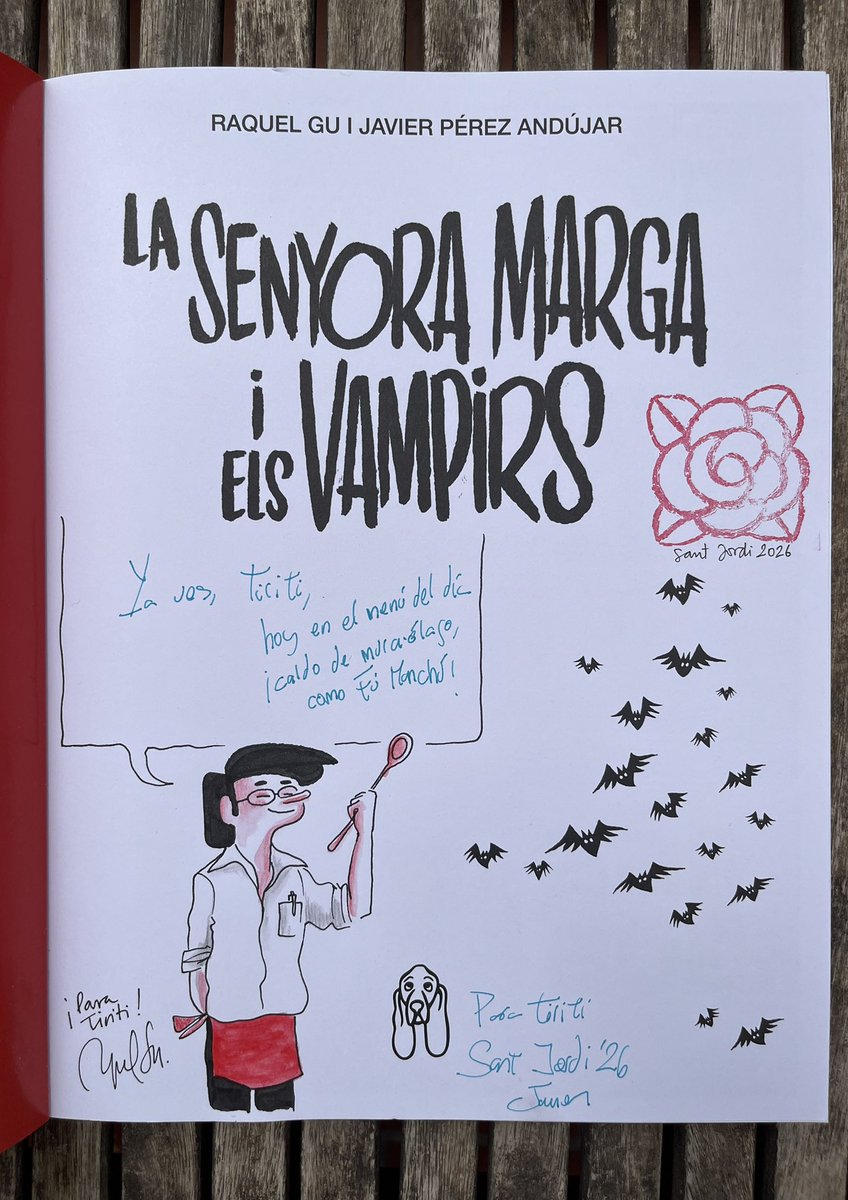 RAQUEL GU I JAVIER PÉREZ ANDÚJAR
LA SENYORA MARGA
i
ELS VAMPiRS
Sant Jordi 2026
Ya ves, Tiriti,
hoy en el menú del día
¡caldo de murciélago,
como tú Manchú!
¡Para
Tiriti!
Raquel Gu.
Para Tiriti
Sant Jordi '26
Javier